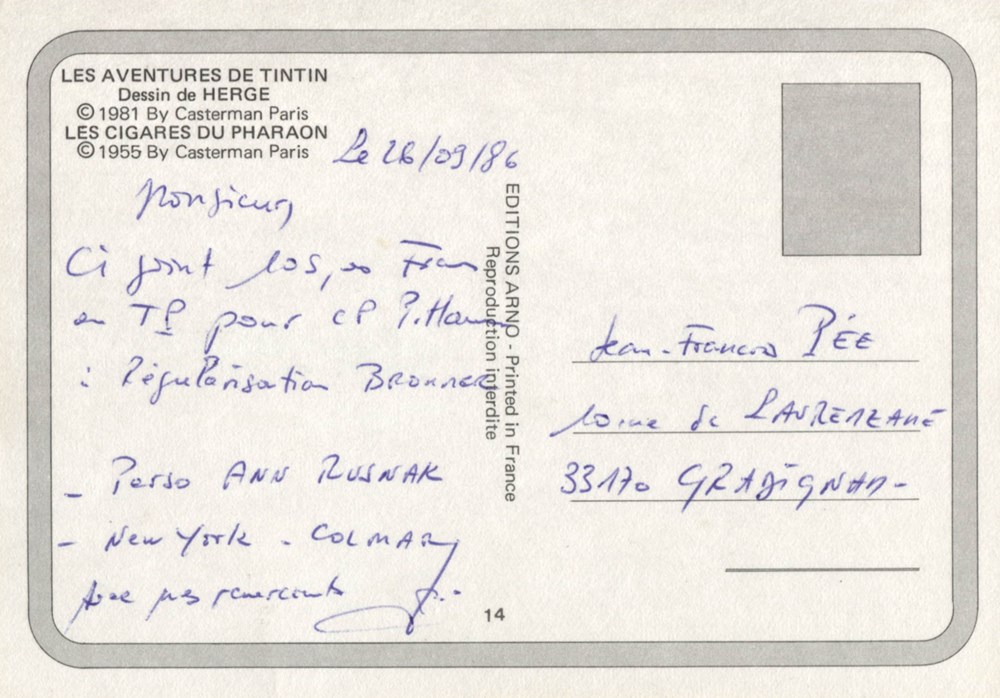 LES AVENTURES DE TINTIN
Dessin de HERGE
© 1981 By Casterman Paris
LES CIGARES DU PHARAON
© 1955 By Casterman Paris
Le 26/09/86
Monsieur,
Ci joint 105,00 Francs
en TP pour CP P. Hamm
: Régularisation BRONNER
- Perso ANN RUSNAK
- New York - COLMAR
Avec mes remerciements
EDITIONS ARNO - Printed in France
Reproduction interdite
14
Jean-Francois PÉE
de LAURENZANE
33170 GRADIGNAN -